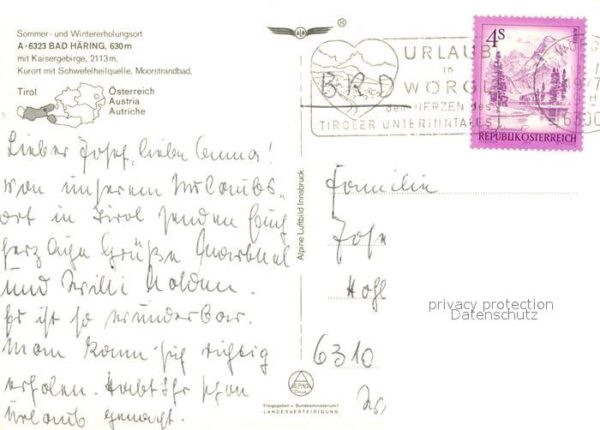 Sommer- und Wintererholungsort
A-6323 BAD HÄRING, 630 m
mit Kaisergebirge, 2113 m,
Kurort mit Schwefelheilquelle, Moorstrandbad,
Tirol
Österreich
Austria
Autriche
®
URLAUB
in
WÖRGL
dem HERZEN des
TIROLER UNTERINNTALES
4S
REPUBLIK ÖSTERREICH
BRD
Lieber Josef, lieben Anna!
Von unserem Urlaubs-
ort in Tirol senden Euch
herz Grüße
und Willi
Es ist so wunderbar.
Man kann sich richtig
erholen. Habt Ihr schon
Urlaub gemacht.
Familie
6310
Alpine Luftbild Innsbruck
ALPINE
Freigegeben v. Bundesministerium f.
LANDESVERTEIDIGUNG
privacy protection
Datenschutz